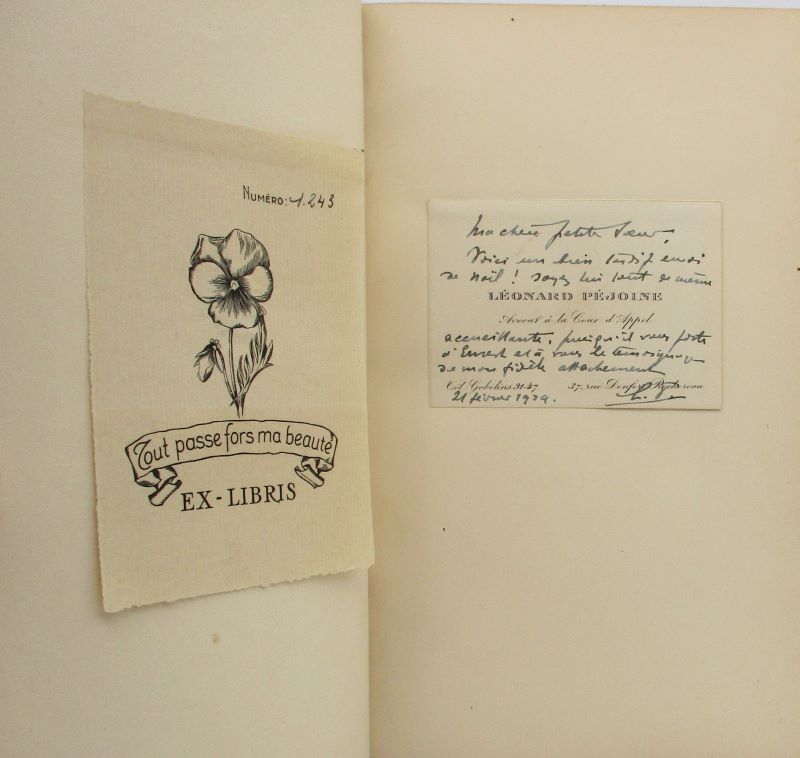 Numéro: 1.243
Tout passe fors ma beauté
EX-LIBRIS
Ma chère petite Soeur,
Voici un bien tardif envoi
de Noël ! Soyez lui tout de même
LÉONARD PÉJOINE
Avocat à la Cour d'Appel
accueillante, puisqu'il vous porte
d'Ernest et à vous le témoignage
de mon fidèle attachement
Tél. Gobelins 31-47 37, rue Denfert-Rochereau
21 février 1929.